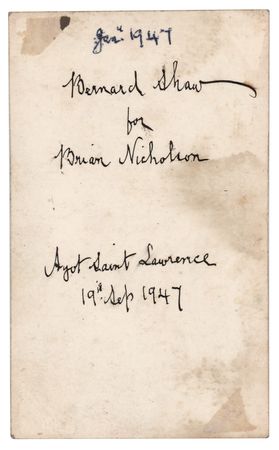 Jan 1947
Bernard Shaw
for
Brian Nicholson
Ayot Saint Lawrence
19th Sep 1947